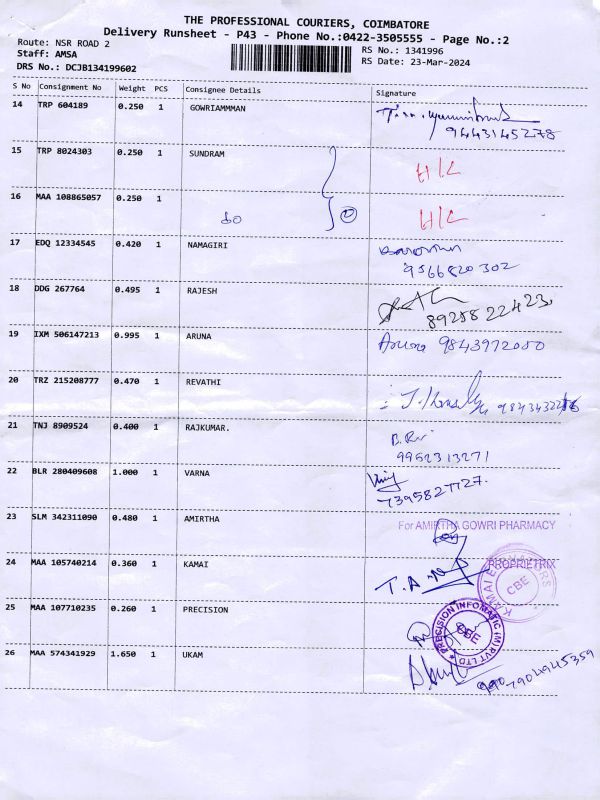 THE PROFESSIONAL COURIERS, COIMBATORE
Delivery Runsheet - P43 - Phone No.:0422-3505555 - Page No.:2
Route: NSR ROAD 2
RS No.: 1341996
Staff: AMSA
RS Date: 23-Mar-2024
DRS No.: DCJB134199602
S No Consignment No Weight PCS Consignee Details Signature
14 TRP 604189 0.250 1 GOWRIAMMMAN
9443145278
15 TRP 8024303 0.250 1 SUNDRAM H/L
16 MAA 108865057 0.250 1 do 2 H/L
17 EDQ 12334545 0.420 1 NAMAGIRI
9566820302
18 DDG 267764 0.495 1 RAJESH
8925822423
19 IXM 506147213 0.995 1 ARUNA Aruna 9843972050
20 TRZ 215208777 0.470 1 REVATHI
21 TNJ 8909524 0.400 1 RAJKUMAR.
9952313271
22 BLR 280409608 1.000 1 VARNA
7395827727.
23 SLM 342311090 0.480 1 AMIRTHA For AMIRTHA GOWRI PHARMACY
24 MAA 105740214 0.360 1 KAMAI PROPRIETRIX
CBE
25 MAA 107710235 0.260 1 PRECISION
PRECISION INFOMATIC (M) PVT LTD
CBE
26 MAA 574341929 1.650 1 UKAM
7904945359